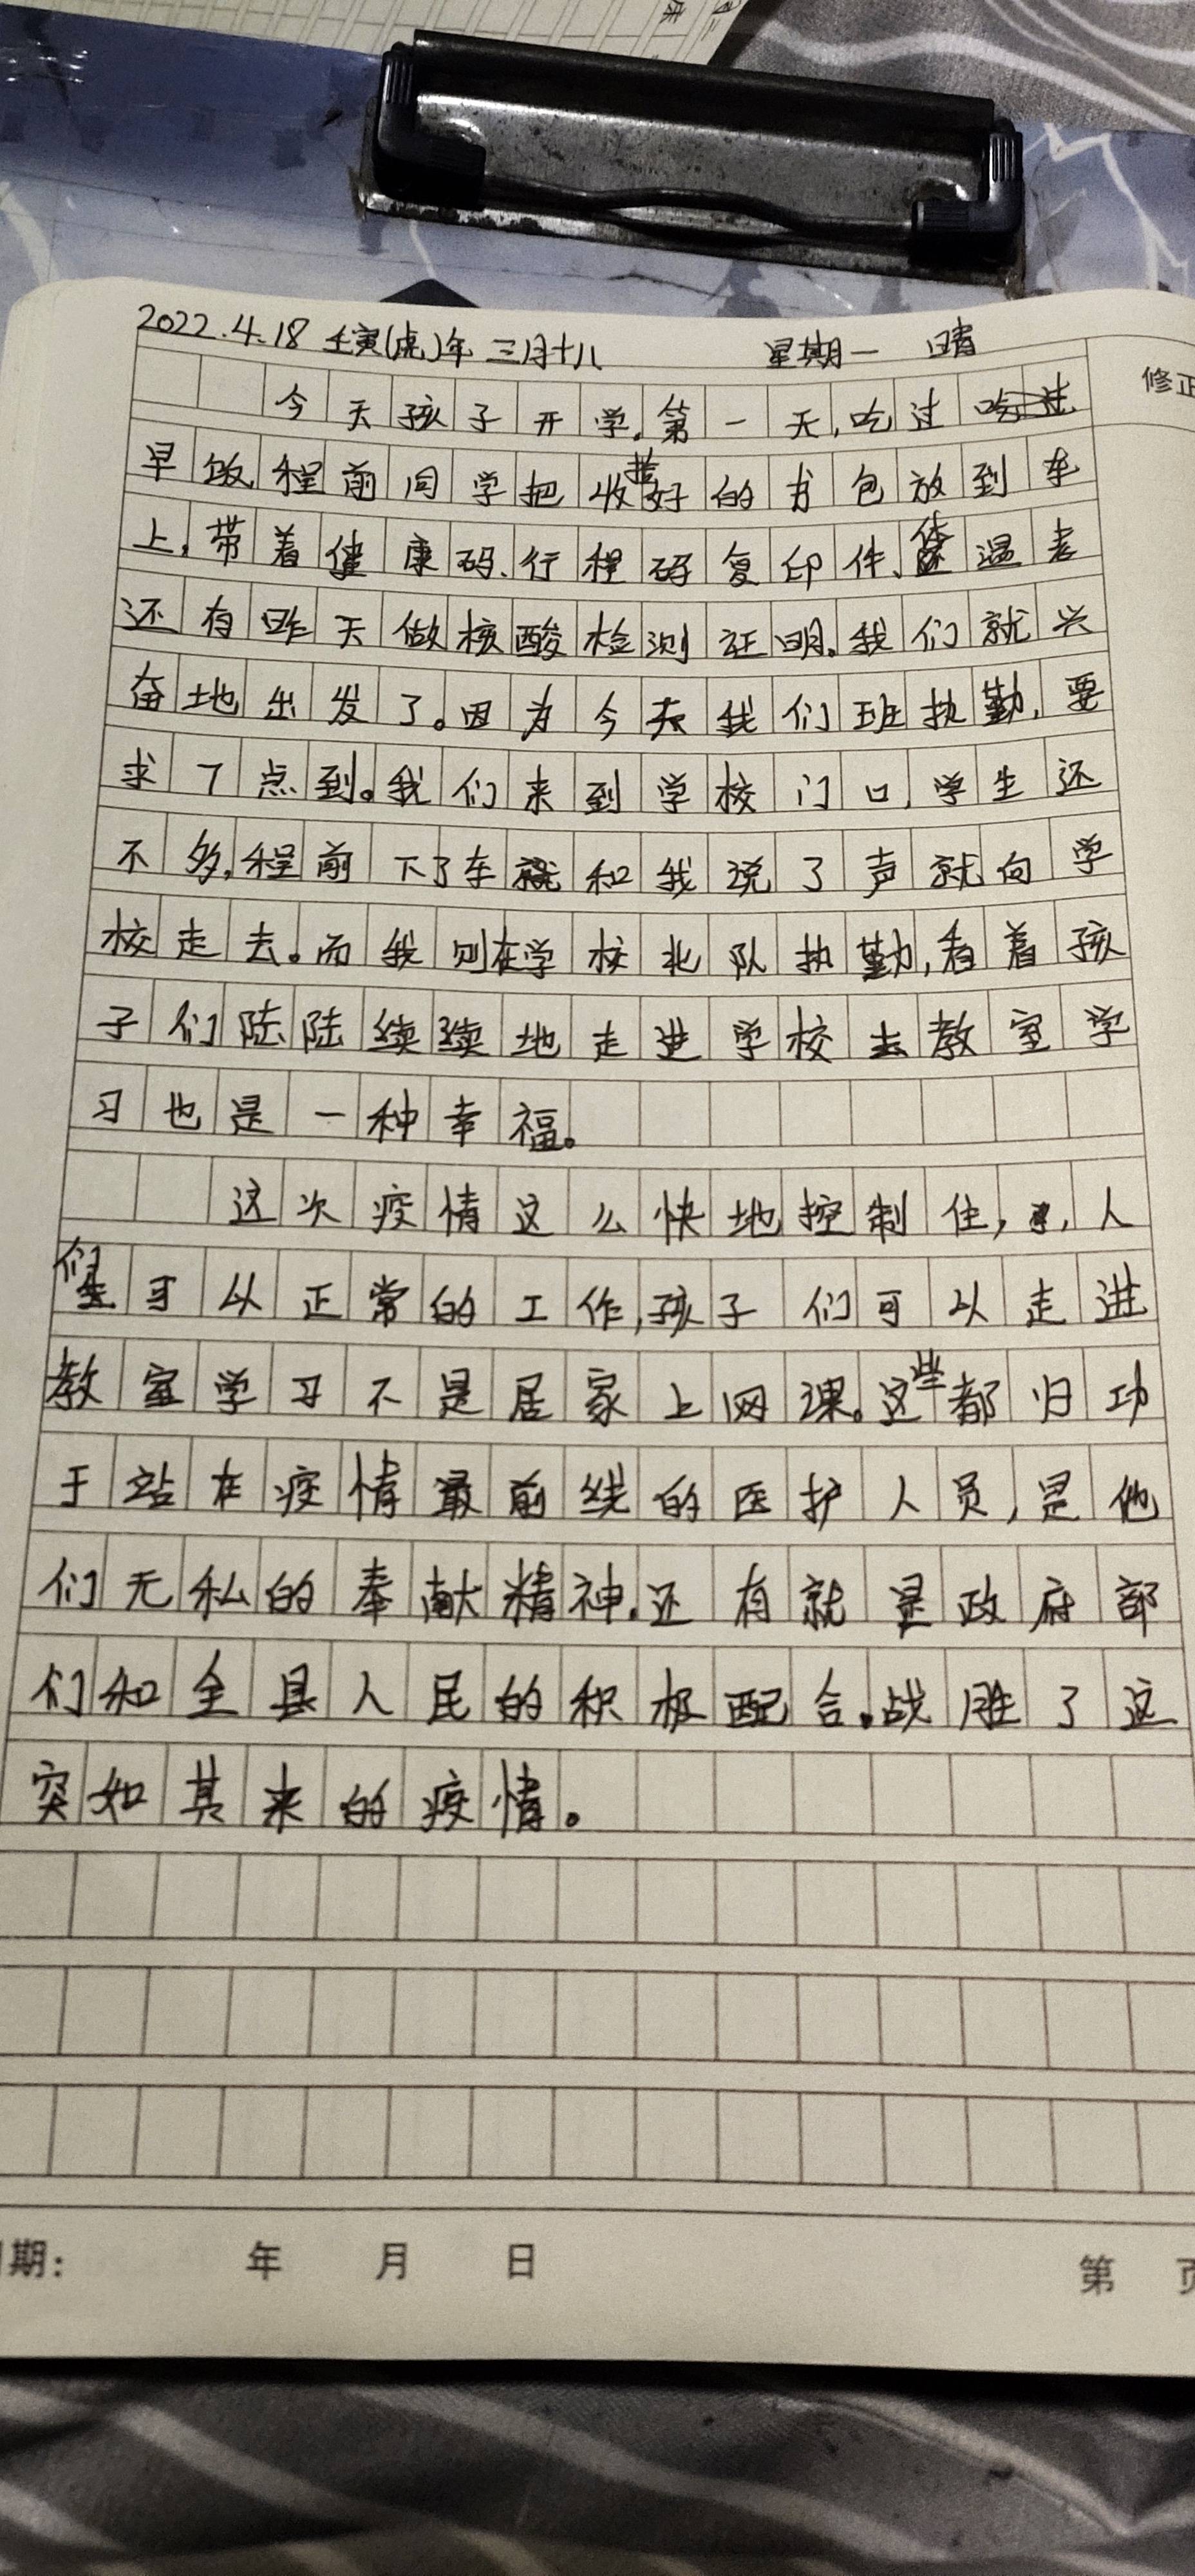 2022.4.18 壬寅(虎)年 三月十八 星期一 晴
修正
今天孩子开学第一天,吃过
早饭,程前同学把收拾好的书包放到车
上,带着健康码、行程码复印件、体温表
还有昨天做核酸检测证明。我们就兴
奋地出发了。因为今天我们班执勤,要
求7点到。我们来到学校门口,学生还
不多,程前下了车就和我说了声就向学
校走去。而我则在学校北队执勤,看着孩
子们陆陆续续地走进学校去教室学
习也是一种幸福。
这次疫情这么快地控制住,人
们可以正常的工作,孩子们可以走进
教室学习不是居家上网课。这些都归功
于站在疫情最前线的医护人员,是他
们无私的奉献精神。还有就是政府部
们和全县人民的积极配合。战胜了这
突如其来的疫情。
期: 年 月 日 第 页